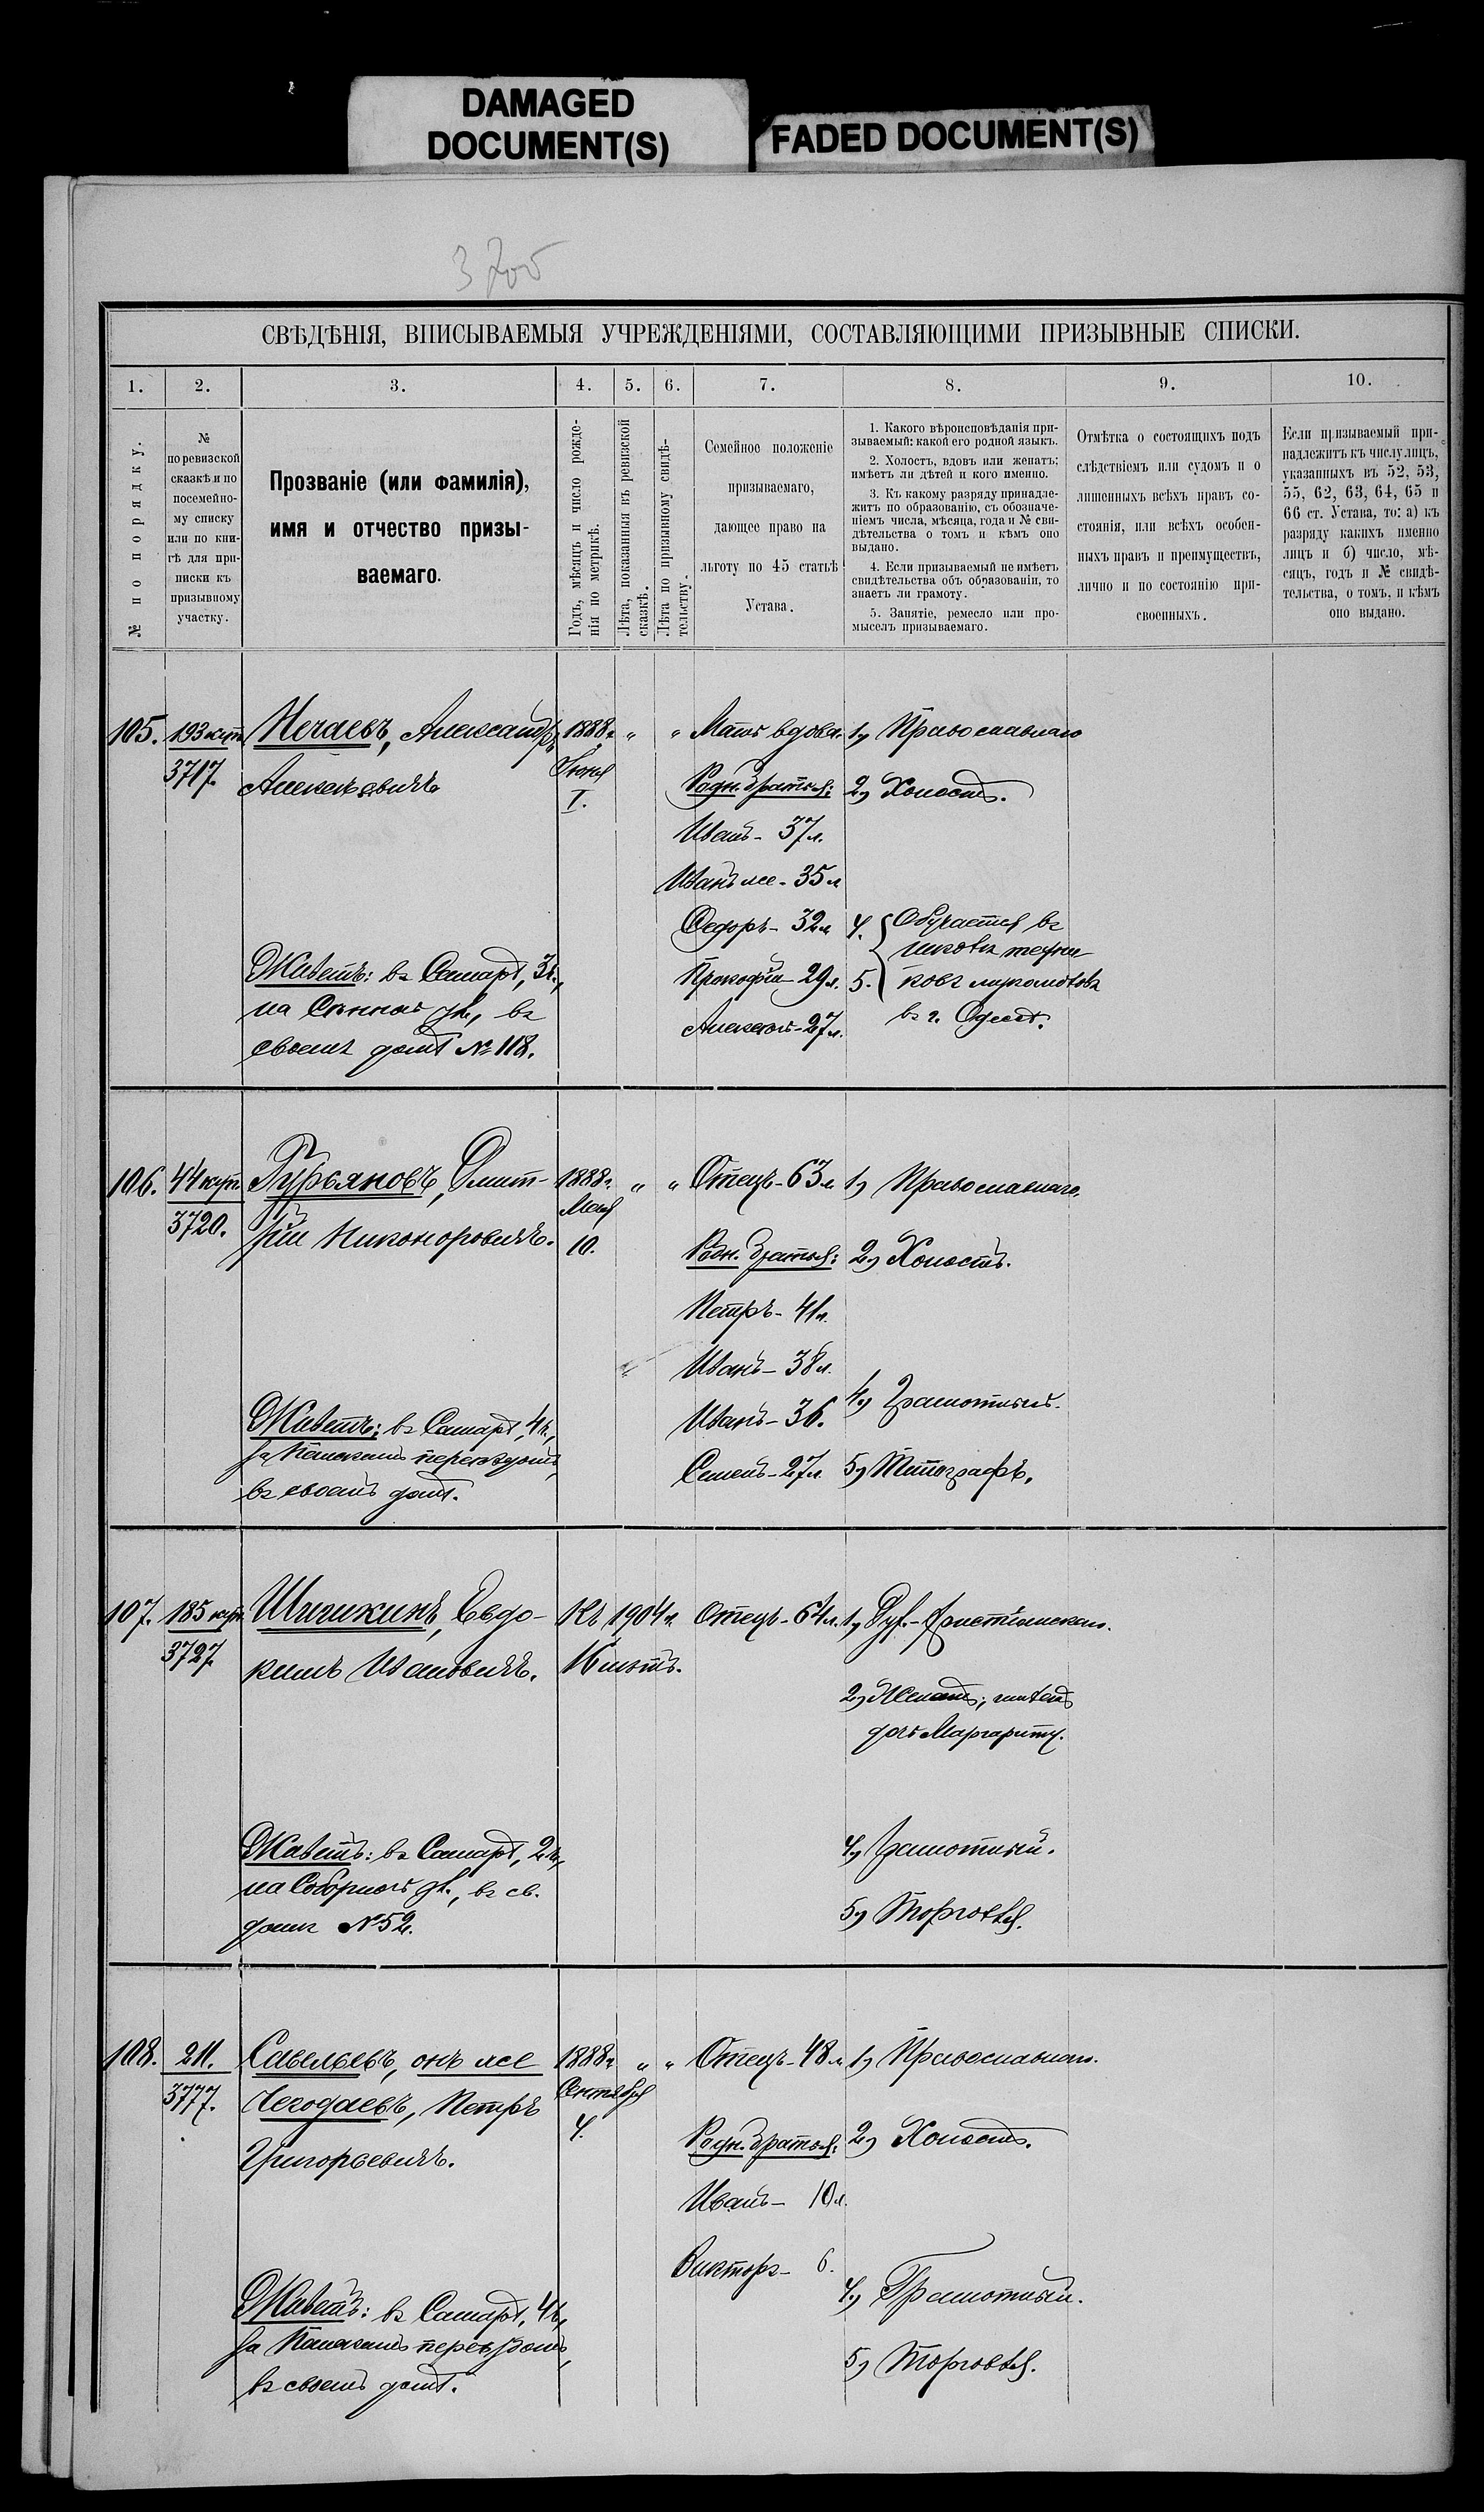 DAMAGED
DOCUMENT(S)
FADED DOCUMENT(S)
СВѢДѢНІЯ, ВПИСЫВАЕМЫЯ УЧРЕЖДЕНІЯМИ, СОСТАВЛЯЮЩИМИ ПРИЗЫВНЫЕ СПИСКИ.
1.
2.
3.
4.
5.
6.
7.
8.
9.
10.
№ по порядку.
№
по ревизской
сказкѣ и по
посемейно-
му списку
или по кни-
гѣ для при-
писки къ
призывному
участку.
Прозваніе (или фамилія),
имя и отчество призы-
ваемаго.
Годъ, мѣсяцъ и число рожде-
нія по метрикѣ.
Лѣта, показанныя въ ревизской
сказкѣ.
Лѣта по призывному свидѣ-
тельству.
Семейное положеніе
призываемаго,
дающее право на
льготу по 45 статьѣ
Устава.
1. Какого вѣроисповѣданія при-
зываемый: какой его родной языкъ.
2. Холостъ, вдовъ или женатъ;
имѣетъ ли дѣтей и кого именно.
3. Къ какому разряду принадле-
житъ по образованію, съ обозначе-
ніемъ числа, мѣсяца, года и № сви-
дѣтельства о томъ и кѣмъ оно
выдано.
4. Если призываемый не имѣетъ
свидѣтельства объ образованіи, то
знаетъ ли грамоту.
5. Занятіе, ремесло или про-
мыселъ призываемаго.
Отмѣтка о состоящихъ подъ
слѣдствіемъ или судомъ и о
лишенныхъ всѣхъ правъ со-
стоянія, или всѣхъ особен-
ныхъ правъ и преимуществъ,
лично и по состоянію при-
своенныхъ.
Если призываемый при-
надлежитъ къ числу лицъ,
указанныхъ въ 52, 53,
55, 62, 63, 64, 65 и
66 ст. Устава, то: а) къ
разряду какихъ именно
лицъ и б) число, мѣ-
сяцъ, годъ и № свидѣ-
тельства, о томъ, и кѣмъ
оно выдано.
105.
193 куп.
3717.
Нечаевъ, Александръ
Алексѣевичъ
Живетъ: въ Самарѣ, 3 ч.,
на Сѣнной ул., въ
своемъ домѣ № 118.
1888 г.
Іюня
1.
" "
Мать вдова.
Родн. братья:
Иванъ - 37 л.
Иванъ же - 35 л.
Федоръ - 32 л.
Прокофій - 29 л.
Алексѣй - 27 л.
1) Православнаго
2) Холостъ.
4. Обучается въ
школѣ техни-
5. ковъ мукомоловъ
въ г. Одессѣ.
106.
44 куп.
3720.
Гурьяновъ, Дмит-
рій Никоноровичъ.
Живетъ: въ Самарѣ, 4 ч.,
за переѣздомъ,
въ своемъ домѣ.
1888 г.
Мая
10.
" "
Отецъ - 63 л.
Родн. братья:
Петръ - 41 л.
Иванъ - 38 л.
Иванъ - 36.
Семенъ - 27 л.
1) Православнаго.
2) Холостъ.
4) Грамотный.
5) Типографъ.
107.
185 куп.
3727.
Шишкинъ, Евдо-
кимъ Ивановичъ.
Живетъ: въ Самарѣ, 2 ч.,
на Соборной ул., въ св.
домѣ № 52.
Къ 1904 г.
16 лѣтъ.
Отецъ - 64 л.
1) Дух.-христіанскаго.
2) Женатъ; имѣетъ
дочь Маргариту.
4) Грамотный.
5) Торговля.
108.
211.
3777.
Савельевъ, онъ же
Чегодаевъ, Петръ
Григорьевичъ.
Живетъ: въ Самарѣ, 4 ч.,
за переѣздомъ,
въ своемъ домѣ.
1888 г.
Сентября
4.
" "
Отецъ - 48 л.
Родн. братья:
Иванъ - 10 л.
Викторъ - 6.
1) Православнаго.
2) Холостъ.
4) Грамотный.
5) Торговля.